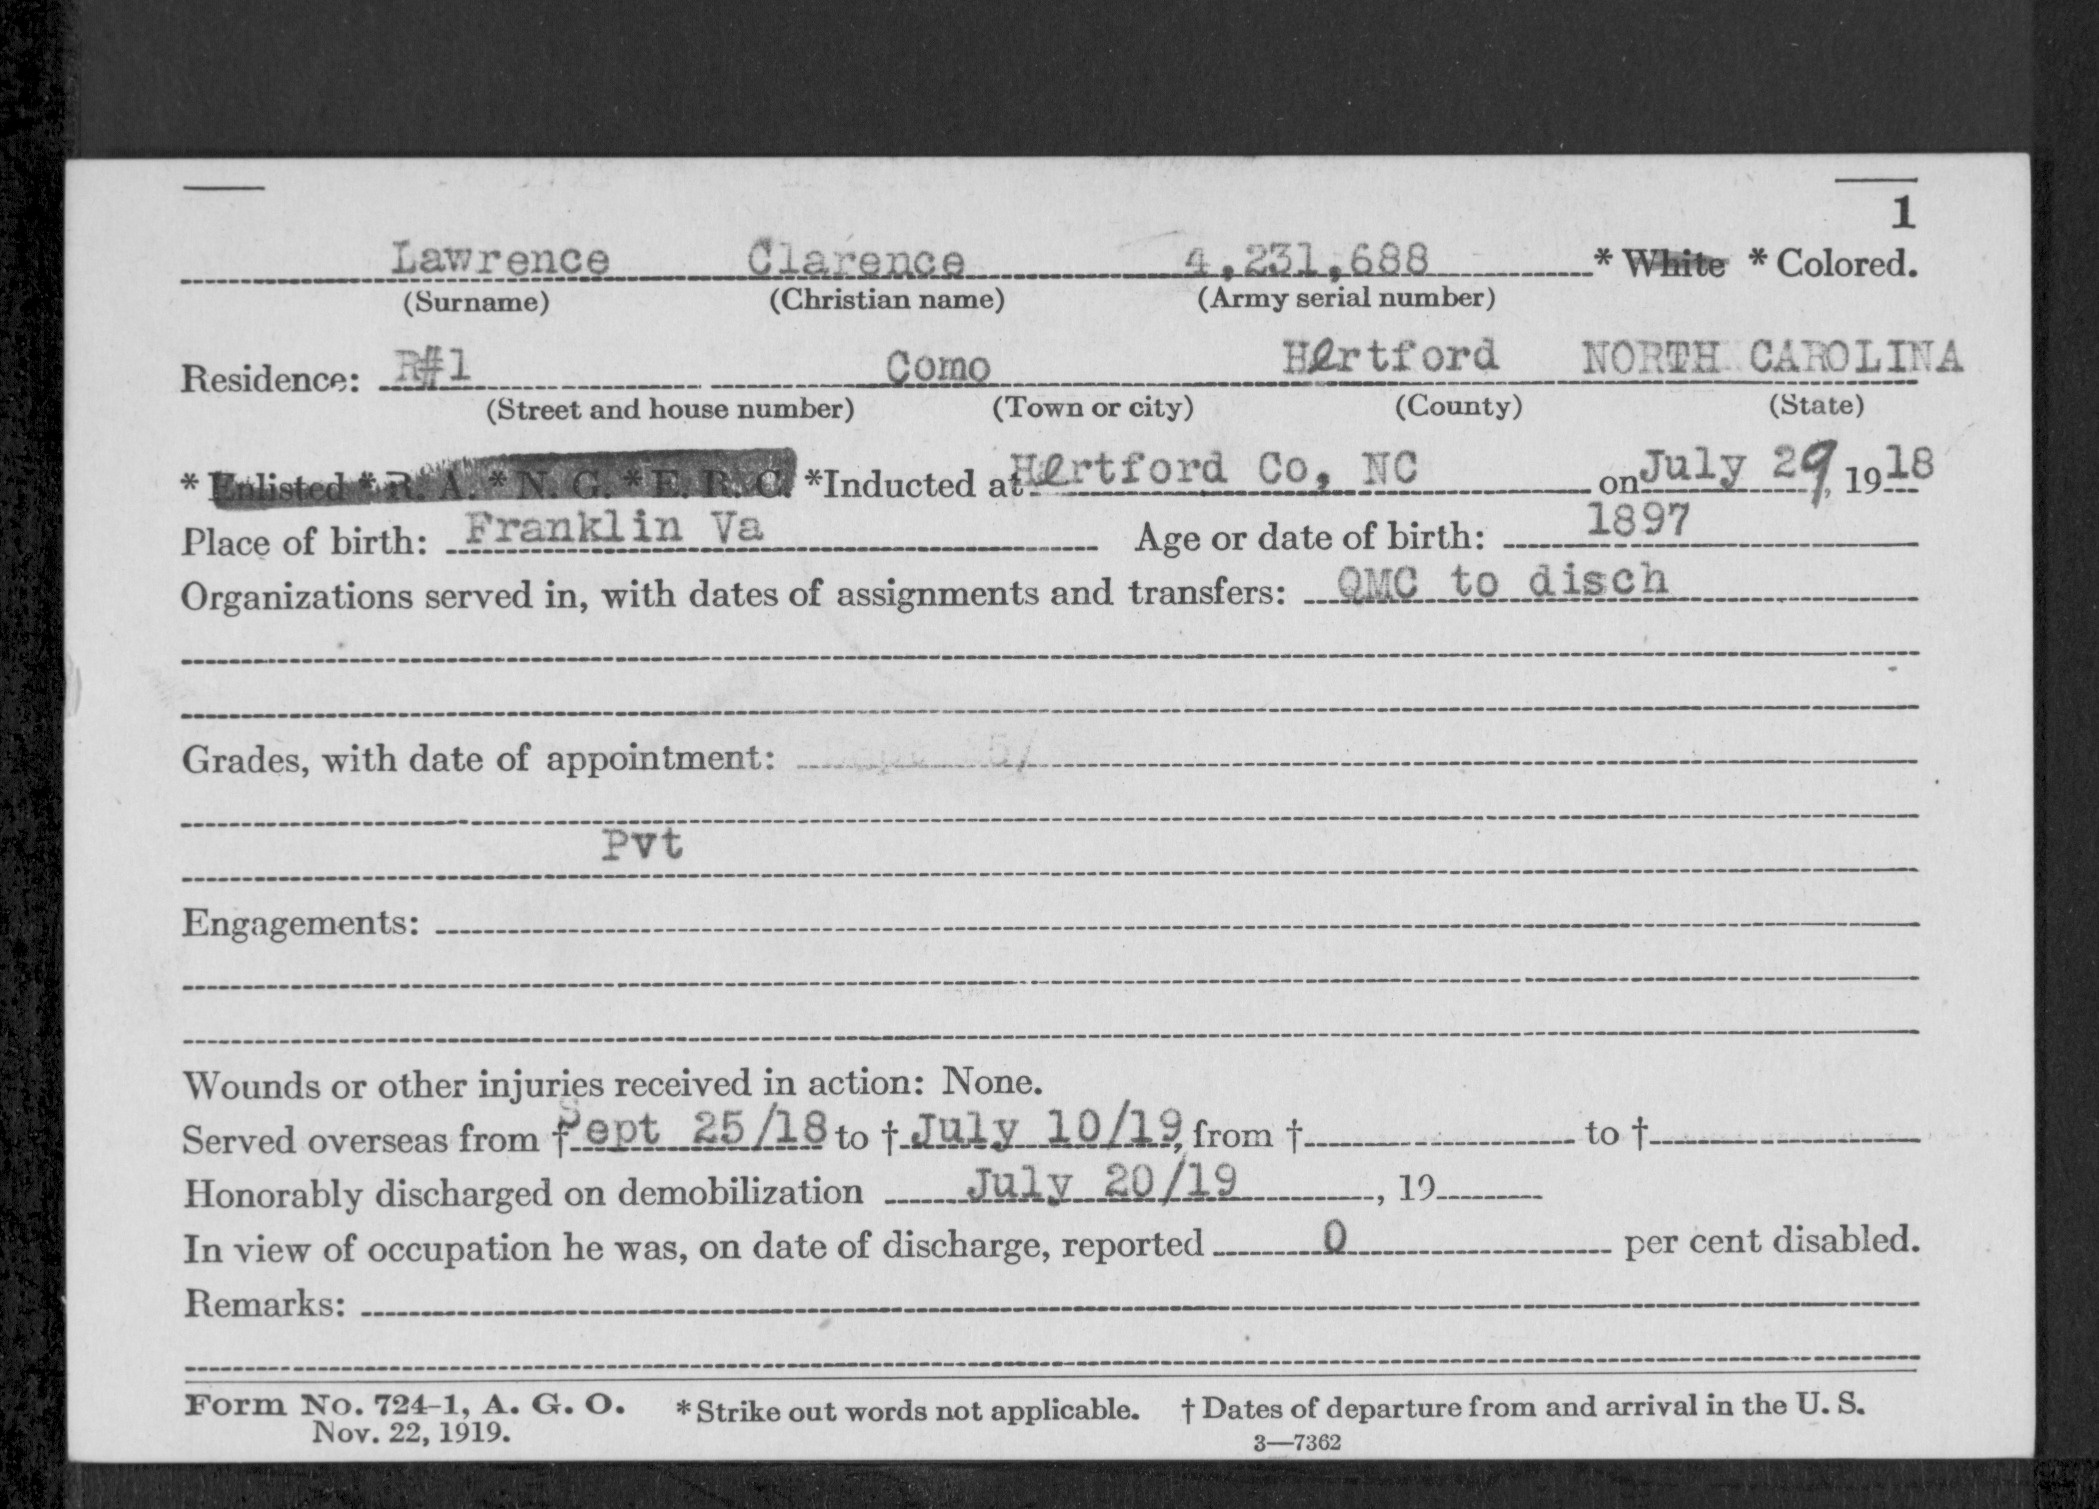 1
Lawrence Clarence 4,231,688 * White * Colored.
(Surname) (Christian name) (Army serial number)
Residence: R#1 Como Hertford NORTH CAROLINA
(Street and house number) (Town or city) (County) (State)
* Enlisted * R. A. * N. G. * E. R. C. *Inducted at Hertford Co, NC on July 29, 1918
Place of birth: Franklin Va Age or date of birth: 1897
Organizations served in, with dates of assignments and transfers: QMC to disch
Grades, with date of appointment:
Pvt
Engagements:
Wounds or other injuries received in action: None.
Served overseas from † Sept 25/18 to † July 10/19, from † to †
Honorably discharged on demobilization July 20/19, 19
In view of occupation he was, on date of discharge, reported 0 per cent disabled.
Remarks:
Form No. 724-1, A. G. O. * Strike out words not applicable. † Dates of departure from and arrival in the U. S.
Nov. 22, 1919. 3—7362